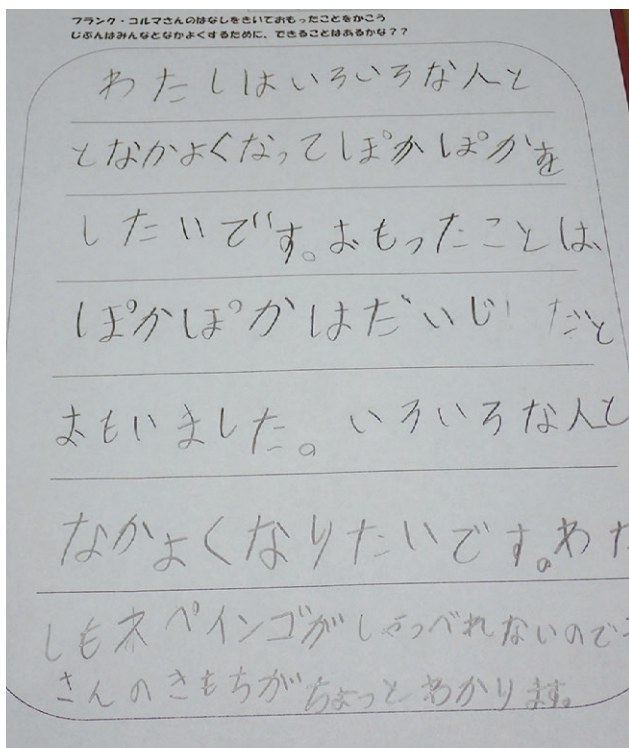 フランク・コルマさんのはなしをきいておもったことをかこう
じぶんはみんなとなかよくするために、できることはあるかな??
わたしはいろいろな人と
となかよくなってぽかぽかを
したいです。おもったことは、
ぽかぽかはだいじだと
おもいました。いろいろな人と
なかよくなりたいです。わた
しもネペインゴがしゃっべれないので
さんのきもちがちょっとわかります。